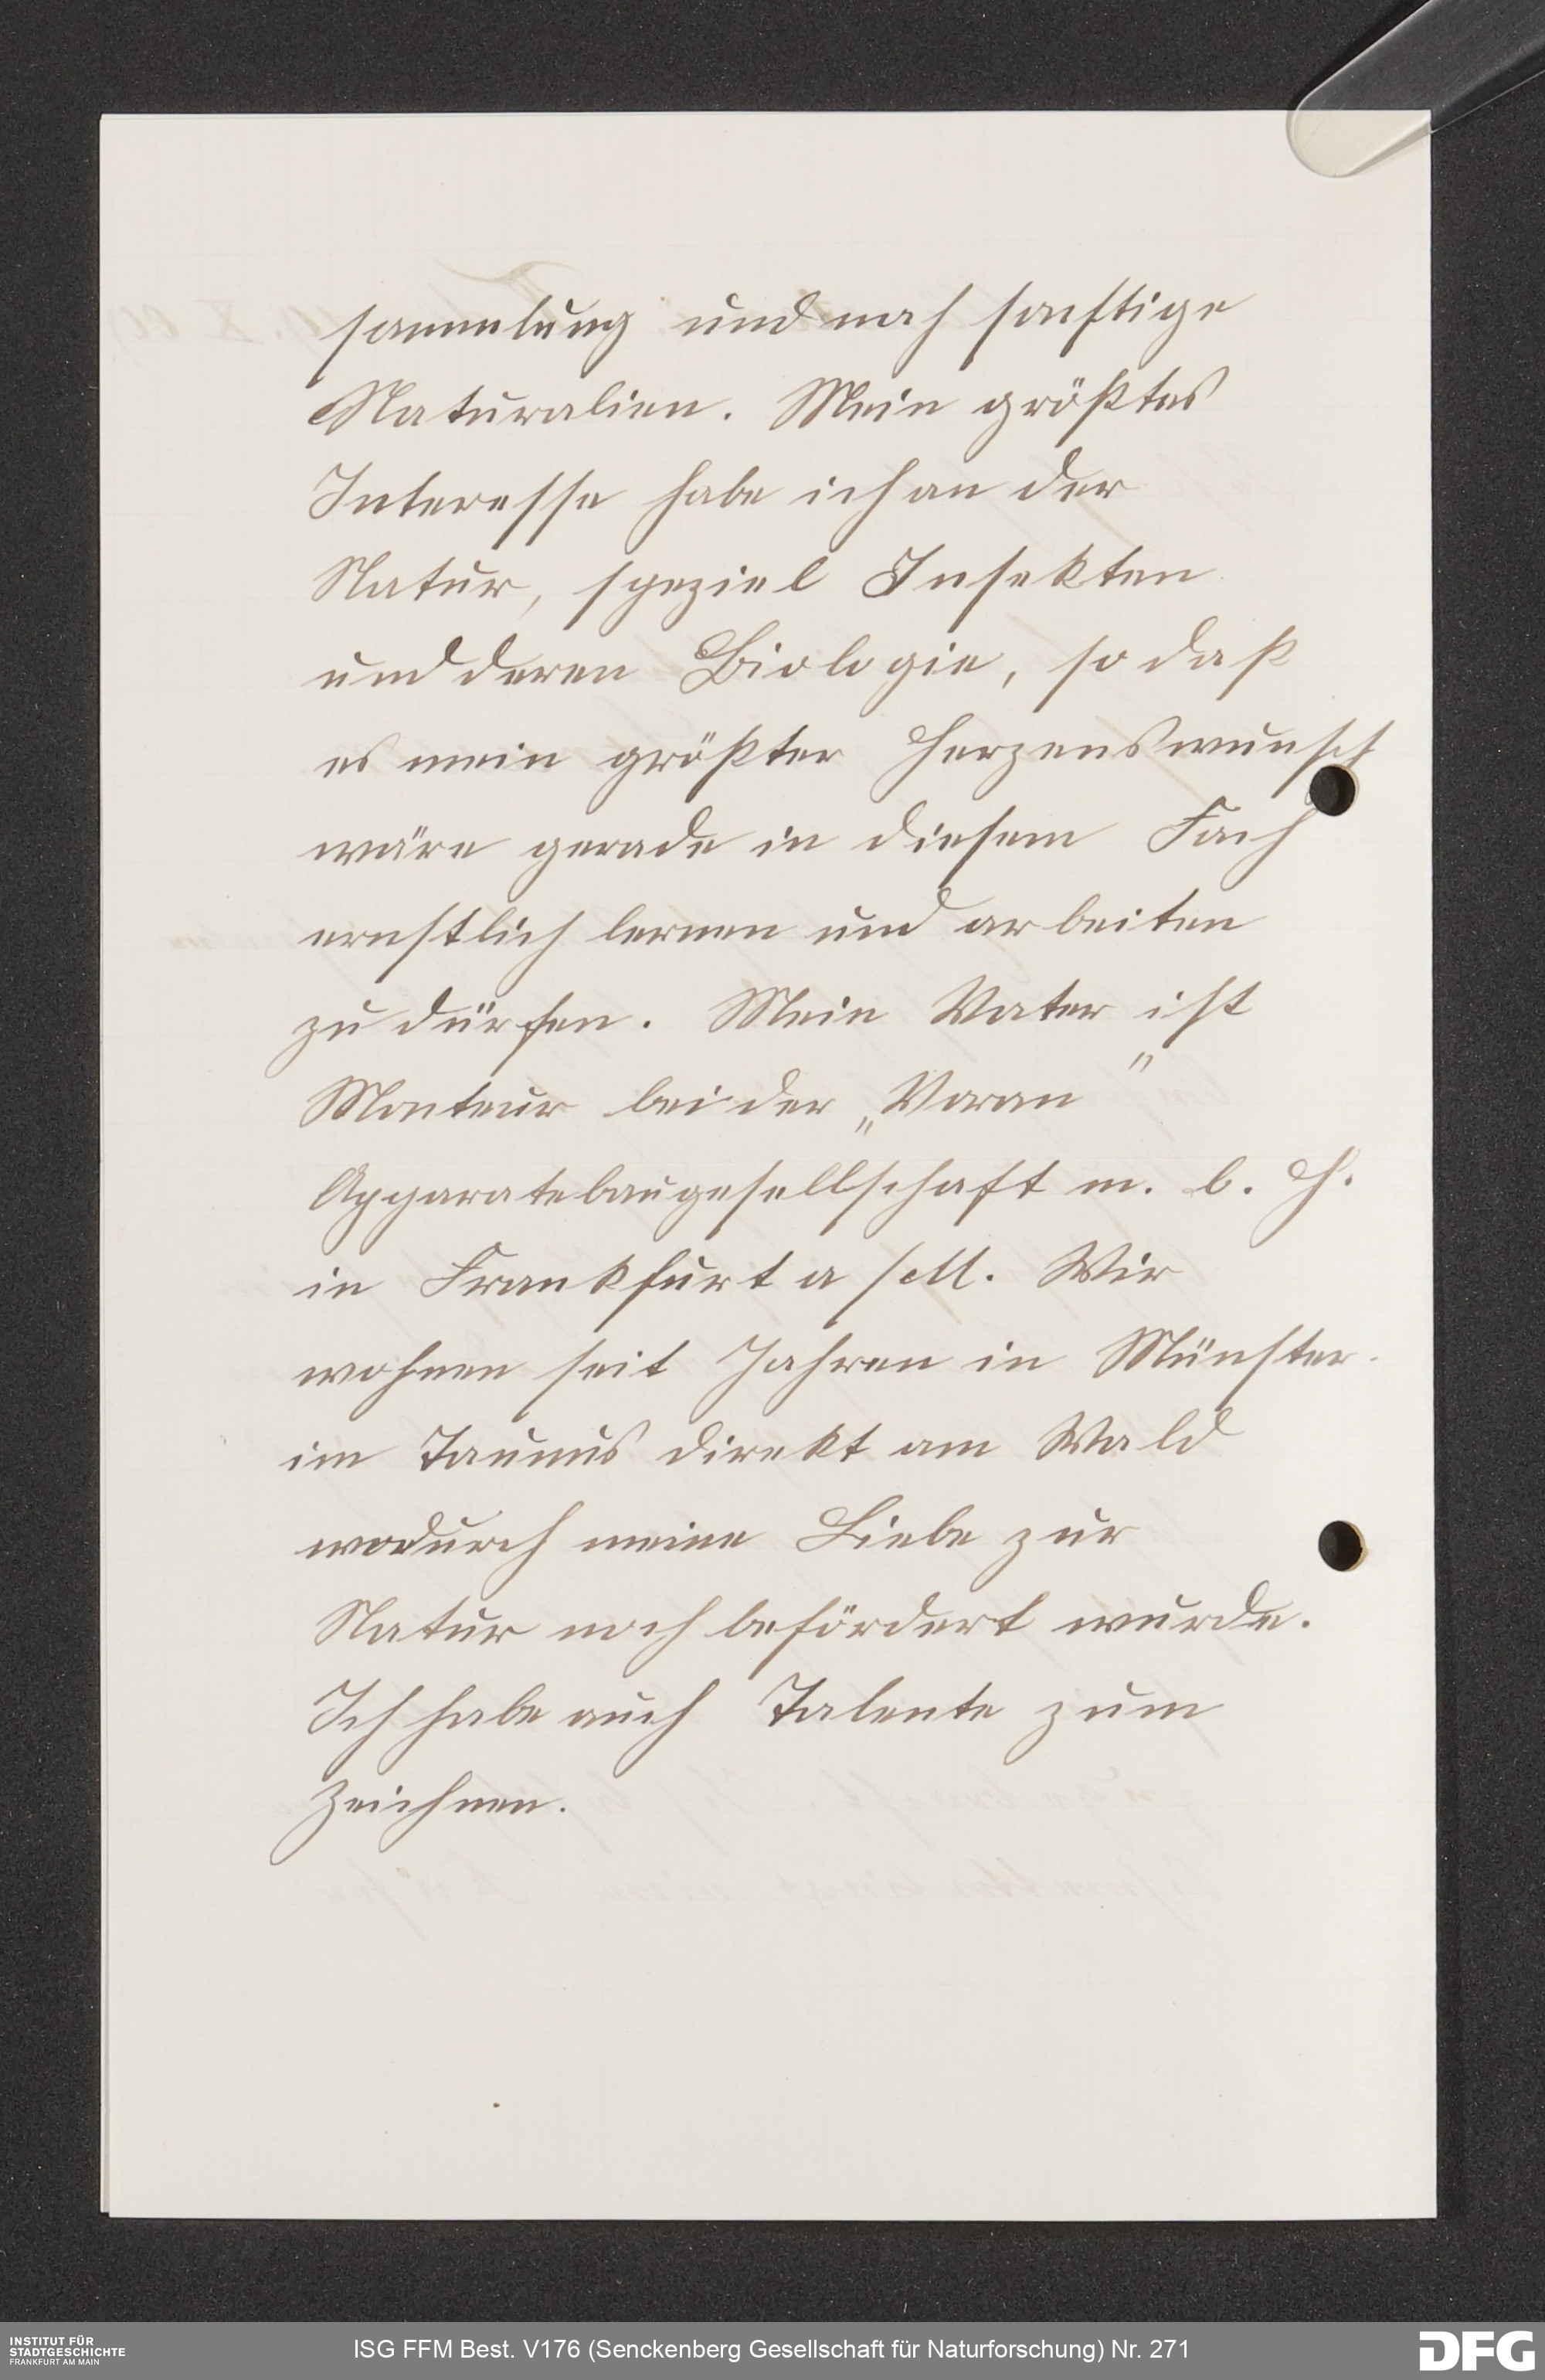 sammlung und noch sonstige
Naturalien. Mein größtes
Interesse habe ich an der
Natur, speziel Insekten
und deren Biologie, so daß
es mein größter Herzenswunsch
wäre gerade in diesem Fach
ernstlich lernen und arbeiten
zu dürfen. Mein Vater ist
Monteur bei der „Voran"
Apparatebaugesellschaft m. b. H.
in Frankfurt a/M. Wir
wohnen seit Jahren in Münster
im Taunus direkt am Wald
wodurch meine Liebe zur
Natur noch befördert wurde.
Ich habe auch Talente zum
Zeichnen.
INSTITUT FÜR
STADTGESCHICHTE
FRANKFURT AM MAIN
ISG FFM Best. V176 (Senckenberg Gesellschaft für Naturforschung) Nr. 271
DFG